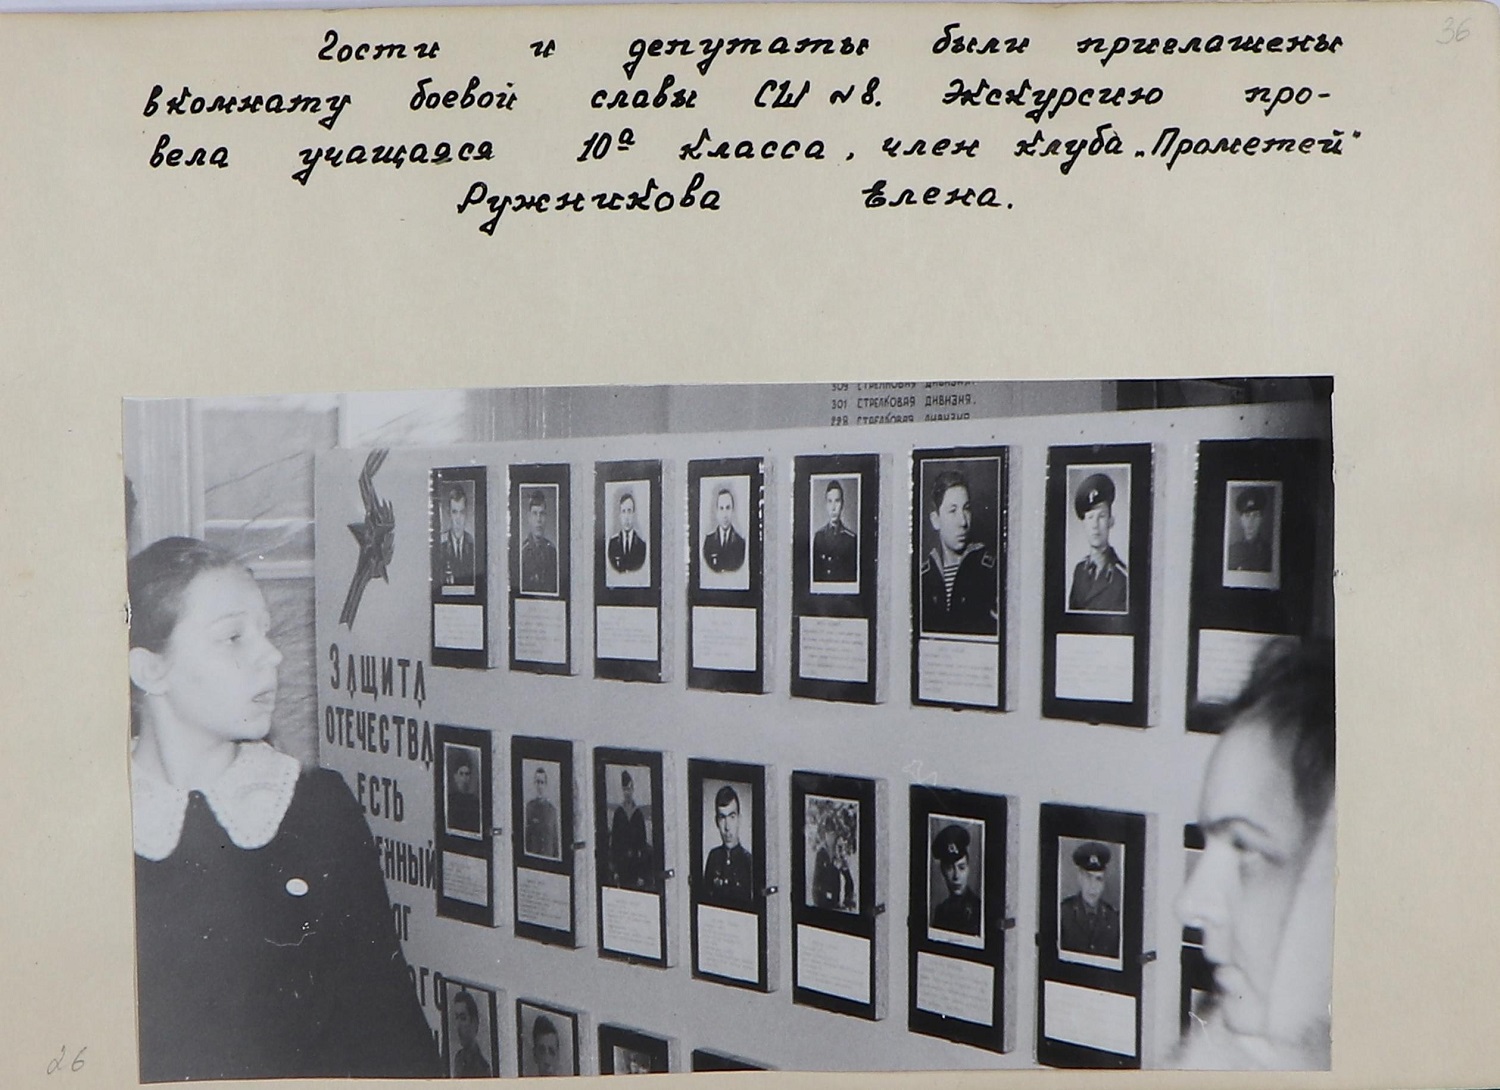 36
Гости и депутаты были приглашены
в комнату боевой славы СШ №8. Экскурсию про-
вела учащаяся 10а класса, член клуба „Прометей"
Ружникова Елена.
309 СТРЕЛКОВАЯ ДИВИЗИЯ.
301 СТРЕЛКОВАЯ ДИВИЗИЯ.
228 СТРЕЛКОВАЯ ДИВИЗИЯ
ЗАЩИТА
ОТЕЧЕСТВА
ЕСТЬ
ЕННЫЙ
ОГ
ОГО
26